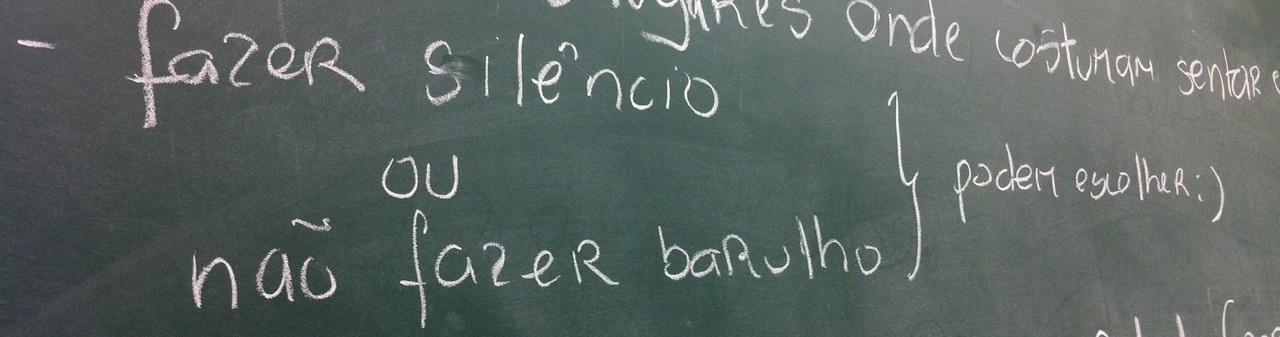 lugares onde costumam sentar e
- fazer silêncio
ou
não fazer barulho
podem escolher :)